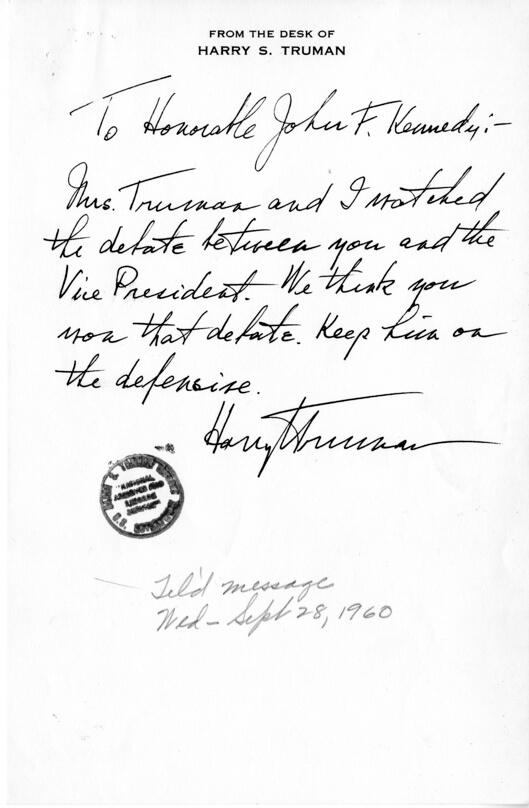 FROM THE DESK OF
HARRY S. TRUMAN
To Honorable John F. Kennedy:-
Mrs. Truman and I watched
the debate between you and the
Vice President. We think you
won that debate. Keep him on
the defensive.
Harry S Truman
NATIONAL
ARCHIVES AND
RECORDS
SERVICE
Tel'd message
Wed - Sept 28, 1960